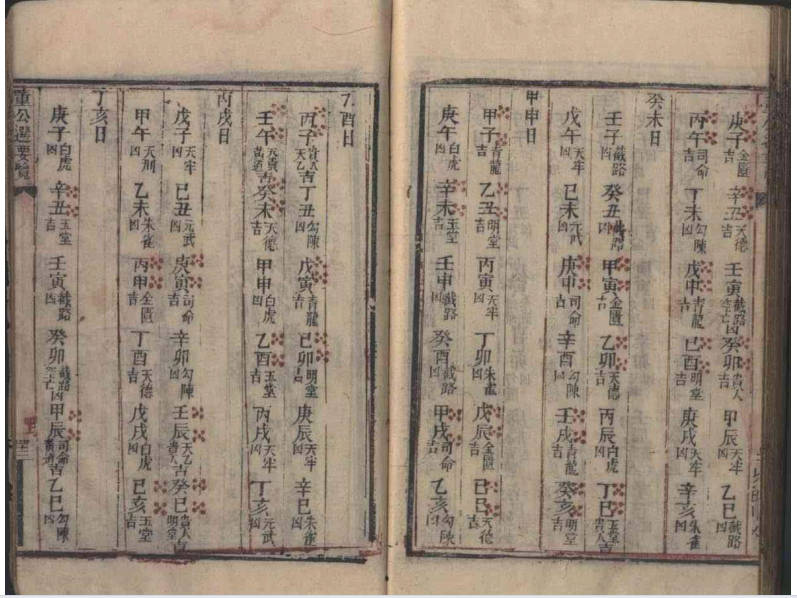 庚子金匱吉 辛丑天德吉 壬寅截路空亡凶 癸卯貴人吉 甲辰天牢凶 乙巳截路凶
丙午司命吉 丁未勾陳凶 戊申青龍吉 己酉明堂吉 庚戌天牢凶 辛亥朱雀凶
癸未日
壬子截路凶 癸丑截路凶 甲寅金匱吉 乙卯天德吉 丙辰白虎凶 丁巳玉堂貴人吉
戊午天牢凶 己未元武凶 庚申司命吉 辛酉勾陳凶 壬戌青龍吉 癸亥明堂吉
甲申日
甲子青龍吉 乙丑明堂吉 丙寅天牢凶 丁卯朱雀凶 戊辰金匱吉 己巳天德吉
庚午白虎凶 辛未玉堂吉 壬申截路凶 癸酉截路凶 甲戌司命吉 乙亥勾陳凶
乙酉日
丙子貴人天乙吉 丁丑勾陳凶 戊寅青龍吉 己卯明堂吉 庚辰天牢凶 辛巳朱雀凶
壬午黃道吉 癸未天德吉 甲申白虎凶 乙酉玉堂吉 丙戌天牢凶 丁亥元武凶
丙戌日
戊子天牢凶 己丑元武凶 庚寅司命吉 辛卯勾陳凶 壬辰天乙貴人吉 癸巳貴人明堂吉
甲午天刑凶 乙未朱雀凶 丙申金匱吉 丁酉天德吉 戊戌白虎凶 己亥玉堂吉
丁亥日
庚子白虎凶 辛丑玉堂吉 壬寅截路凶 癸卯截路空亡凶 甲辰司命黃道吉 乙巳勾陳凶
董公選要覽